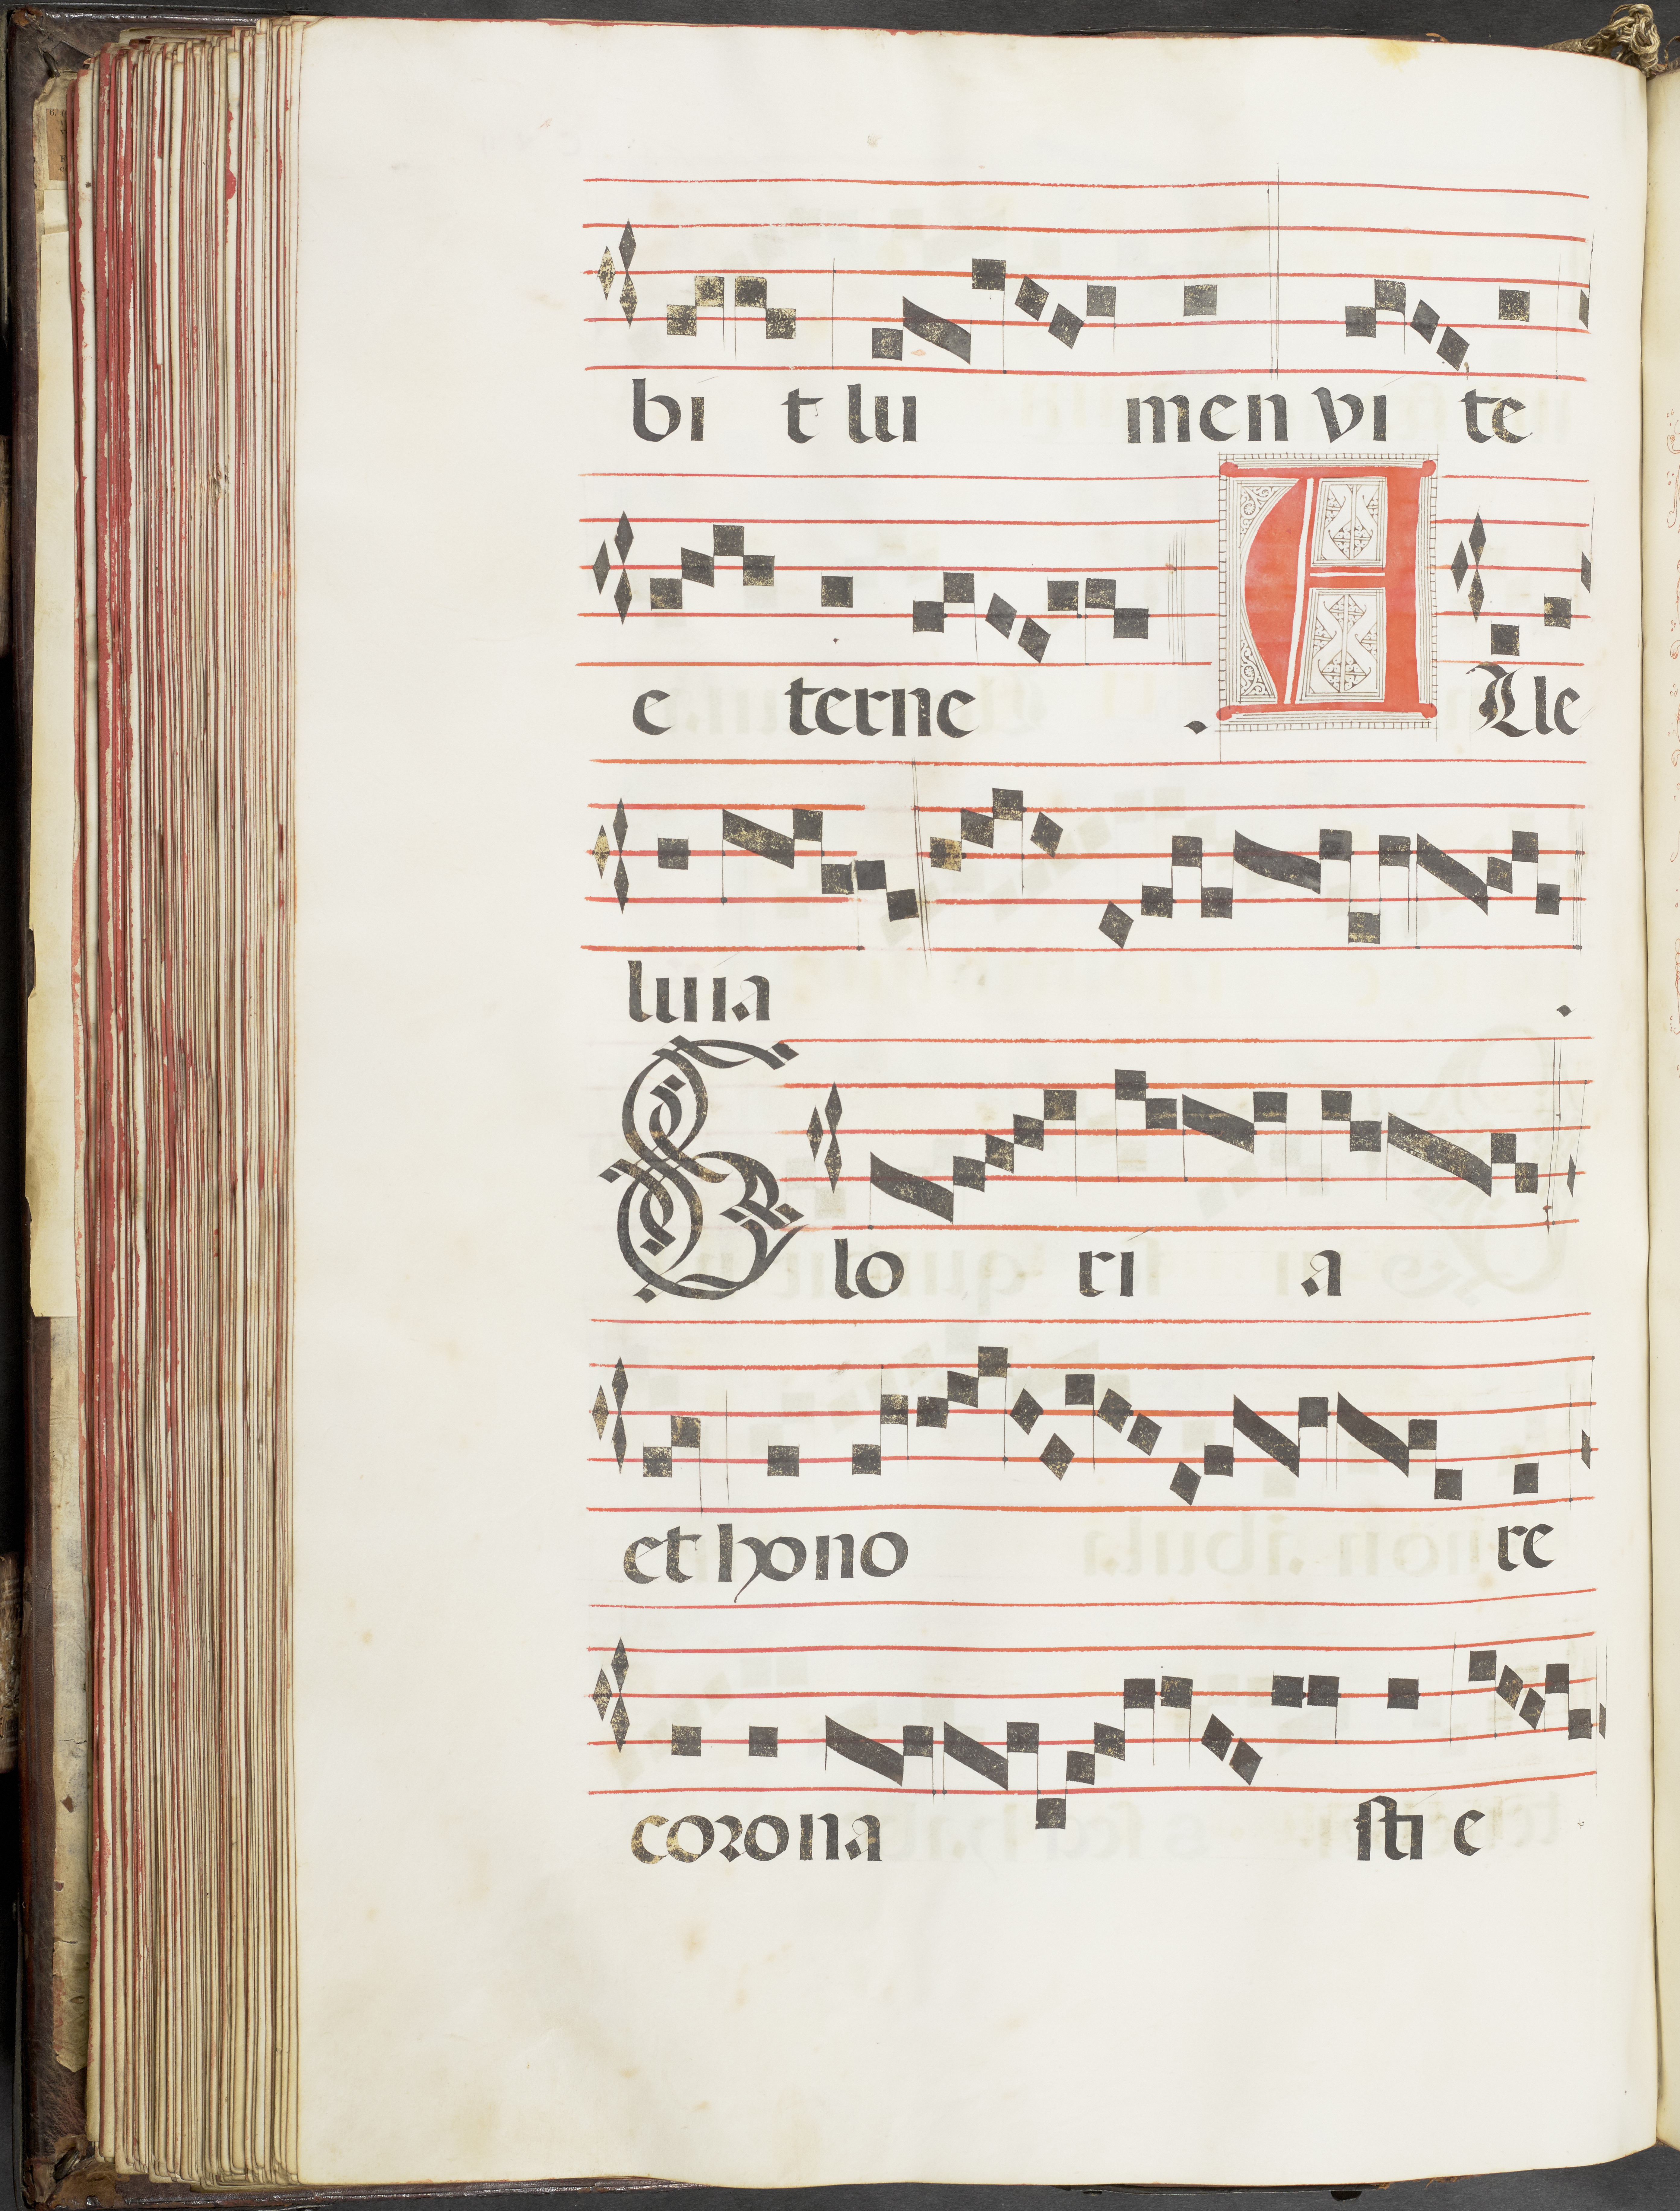 bi t lu men vi te
e terne . A Lle
luia .
G lo ri a
et hono re
corona sti e